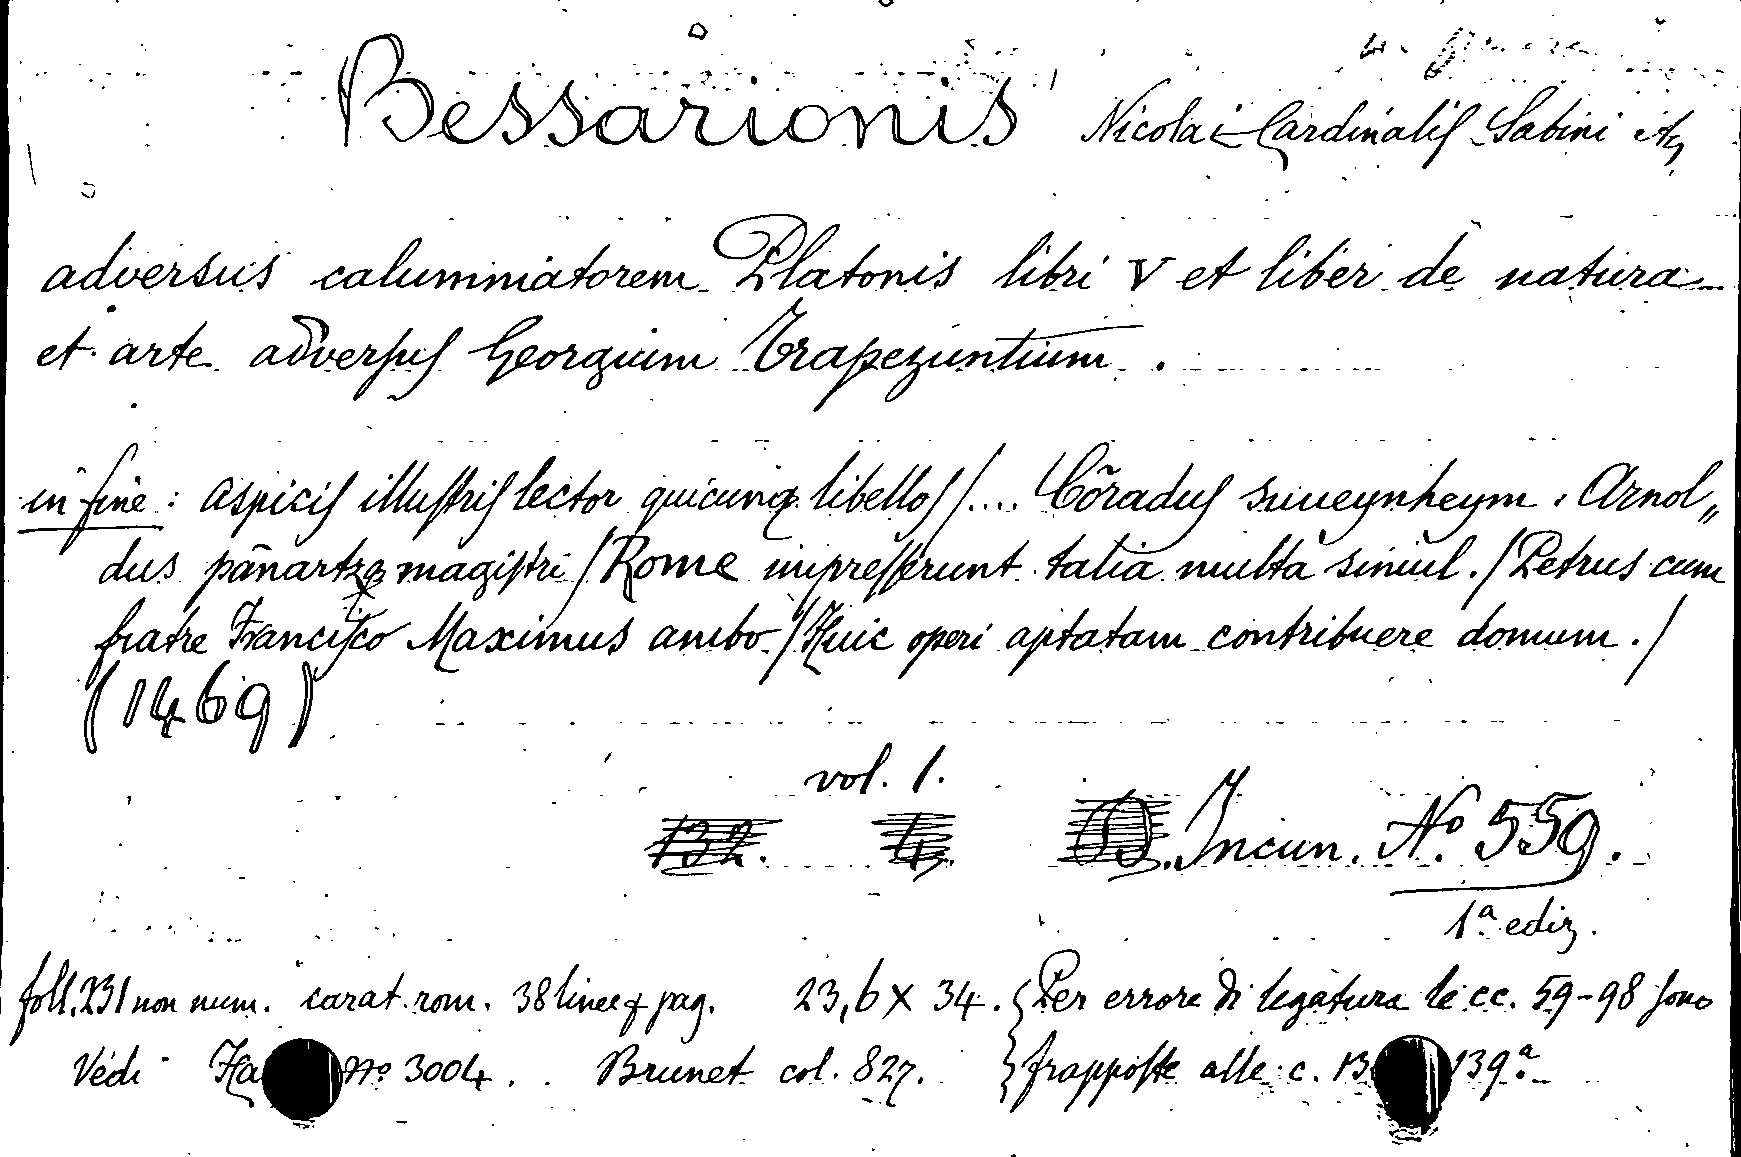 Bessarionis Nicolai Cardinalis Sabini &c
adversus calumniatorem Platonis libri V et liber de natura
et arte adversus Georgium Trapezuntium.
in fine: aspicis illustris lector quicunq libellos/.... Cōradus suueynheym. Arnol„
dus pānartzq magistri/Rome impresserunt talia multa simul./Petrus cum
fratre Francisco Maximus ambo/Huic operi aptatam contribuere domum./
(1469)
vol. 1.
132. 4. Incun. No. 559.
1a ediz.
foll. 231 non num. carat. rom. 38 linee p pag. 23,6 x 34. Per errore di legatura le cc. 59-98 sono
Vedi Ha no 3004. Brunet col. 827. frapposte alle c. 13 139a